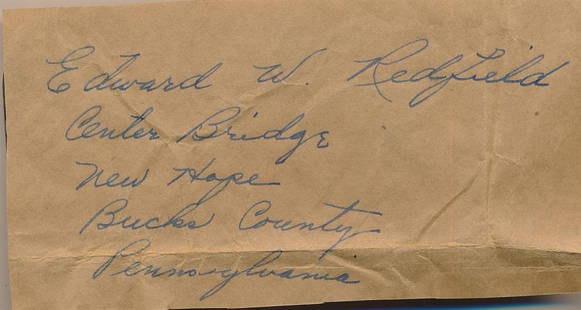 Edward W. Redfield
Center Bridge
New Hope
Bucks County
Pennsylvania